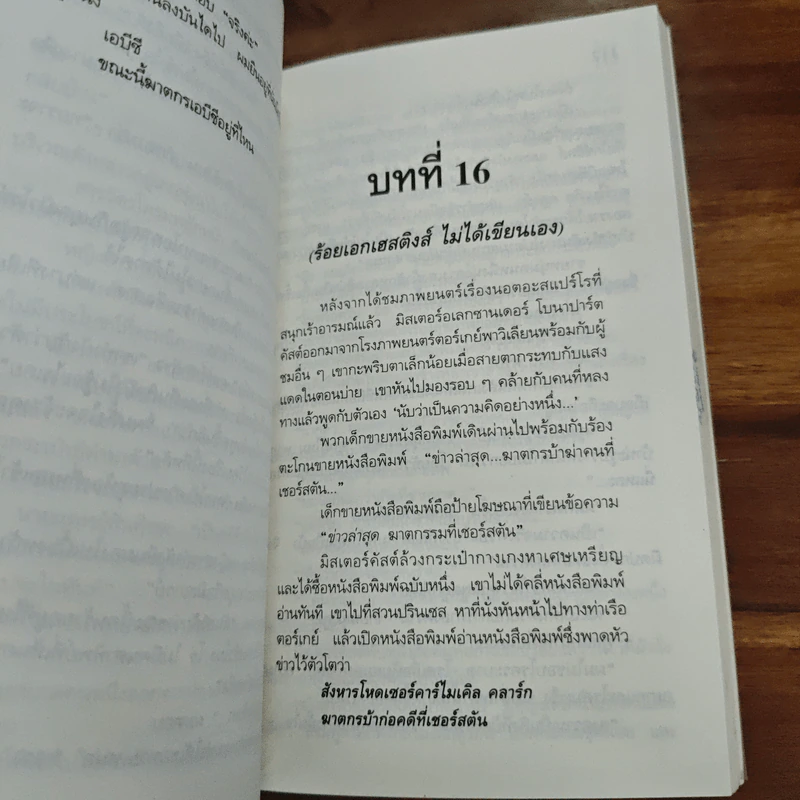 อบ "จริงค่ะ"
เอบีซี
ขณะนี้ฆาตกรเอบีซีอยู่ที่ไหน
บทที่ 16
(ร้อยเอกเฮสติงส์ ไม่ได้เขียนเอง)
หลังจากได้ชมภาพยนตร์เรื่องนอตอะสแปร์โรที่
สนุกเร้าอารมณ์แล้ว มิสเตอร์อเลกซานเดอร์ โบนาปาร์ต
คัสต์ออกมาจากโรงภาพยนตร์ตอร์เกย์พาวิเลียนพร้อมกับผู้
ชมอื่น ๆ เขากะพริบตาเล็กน้อยเมื่อสายตากระทบกับแสง
แดดในตอนบ่าย เขาหันไปมองรอบ ๆ คล้ายกับคนที่หลง
ทางแล้วพูดกับตัวเอง 'นับว่าเป็นความคิดอย่างหนึ่ง...'
พวกเด็กขายหนังสือพิมพ์เดินผ่านไปพร้อมกับร้อง
ตะโกนขายหนังสือพิมพ์ "ข่าวล่าสุด...ฆาตกรบ้าฆ่าคนที่
เชอร์สตัน..."
เด็กขายหนังสือพิมพ์ถือป้ายโฆษณาที่เขียนข้อความ
"ข่าวล่าสุด ฆาตกรรมที่เชอร์สตัน"
มิสเตอร์คัสต์ล้วงกระเป๋ากางเกงหาเศษเหรียญ
และได้ซื้อหนังสือพิมพ์ฉบับหนึ่ง เขาไม่ได้คลี่หนังสือพิมพ์
อ่านทันที เขาไปที่สวนปรินเซส หาที่นั่งหันหน้าไปทางท่าเรือ
ตอร์เกย์ แล้วเปิดหนังสือพิมพ์อ่านหนังสือพิมพ์ซึ่งพาดหัว
ข่าวไว้ตัวโตว่า
สังหารโหดเซอร์คาร์ไมเคิล คลาร์ก
ฆาตกรบ้าก่อคดีที่เชอร์สตัน